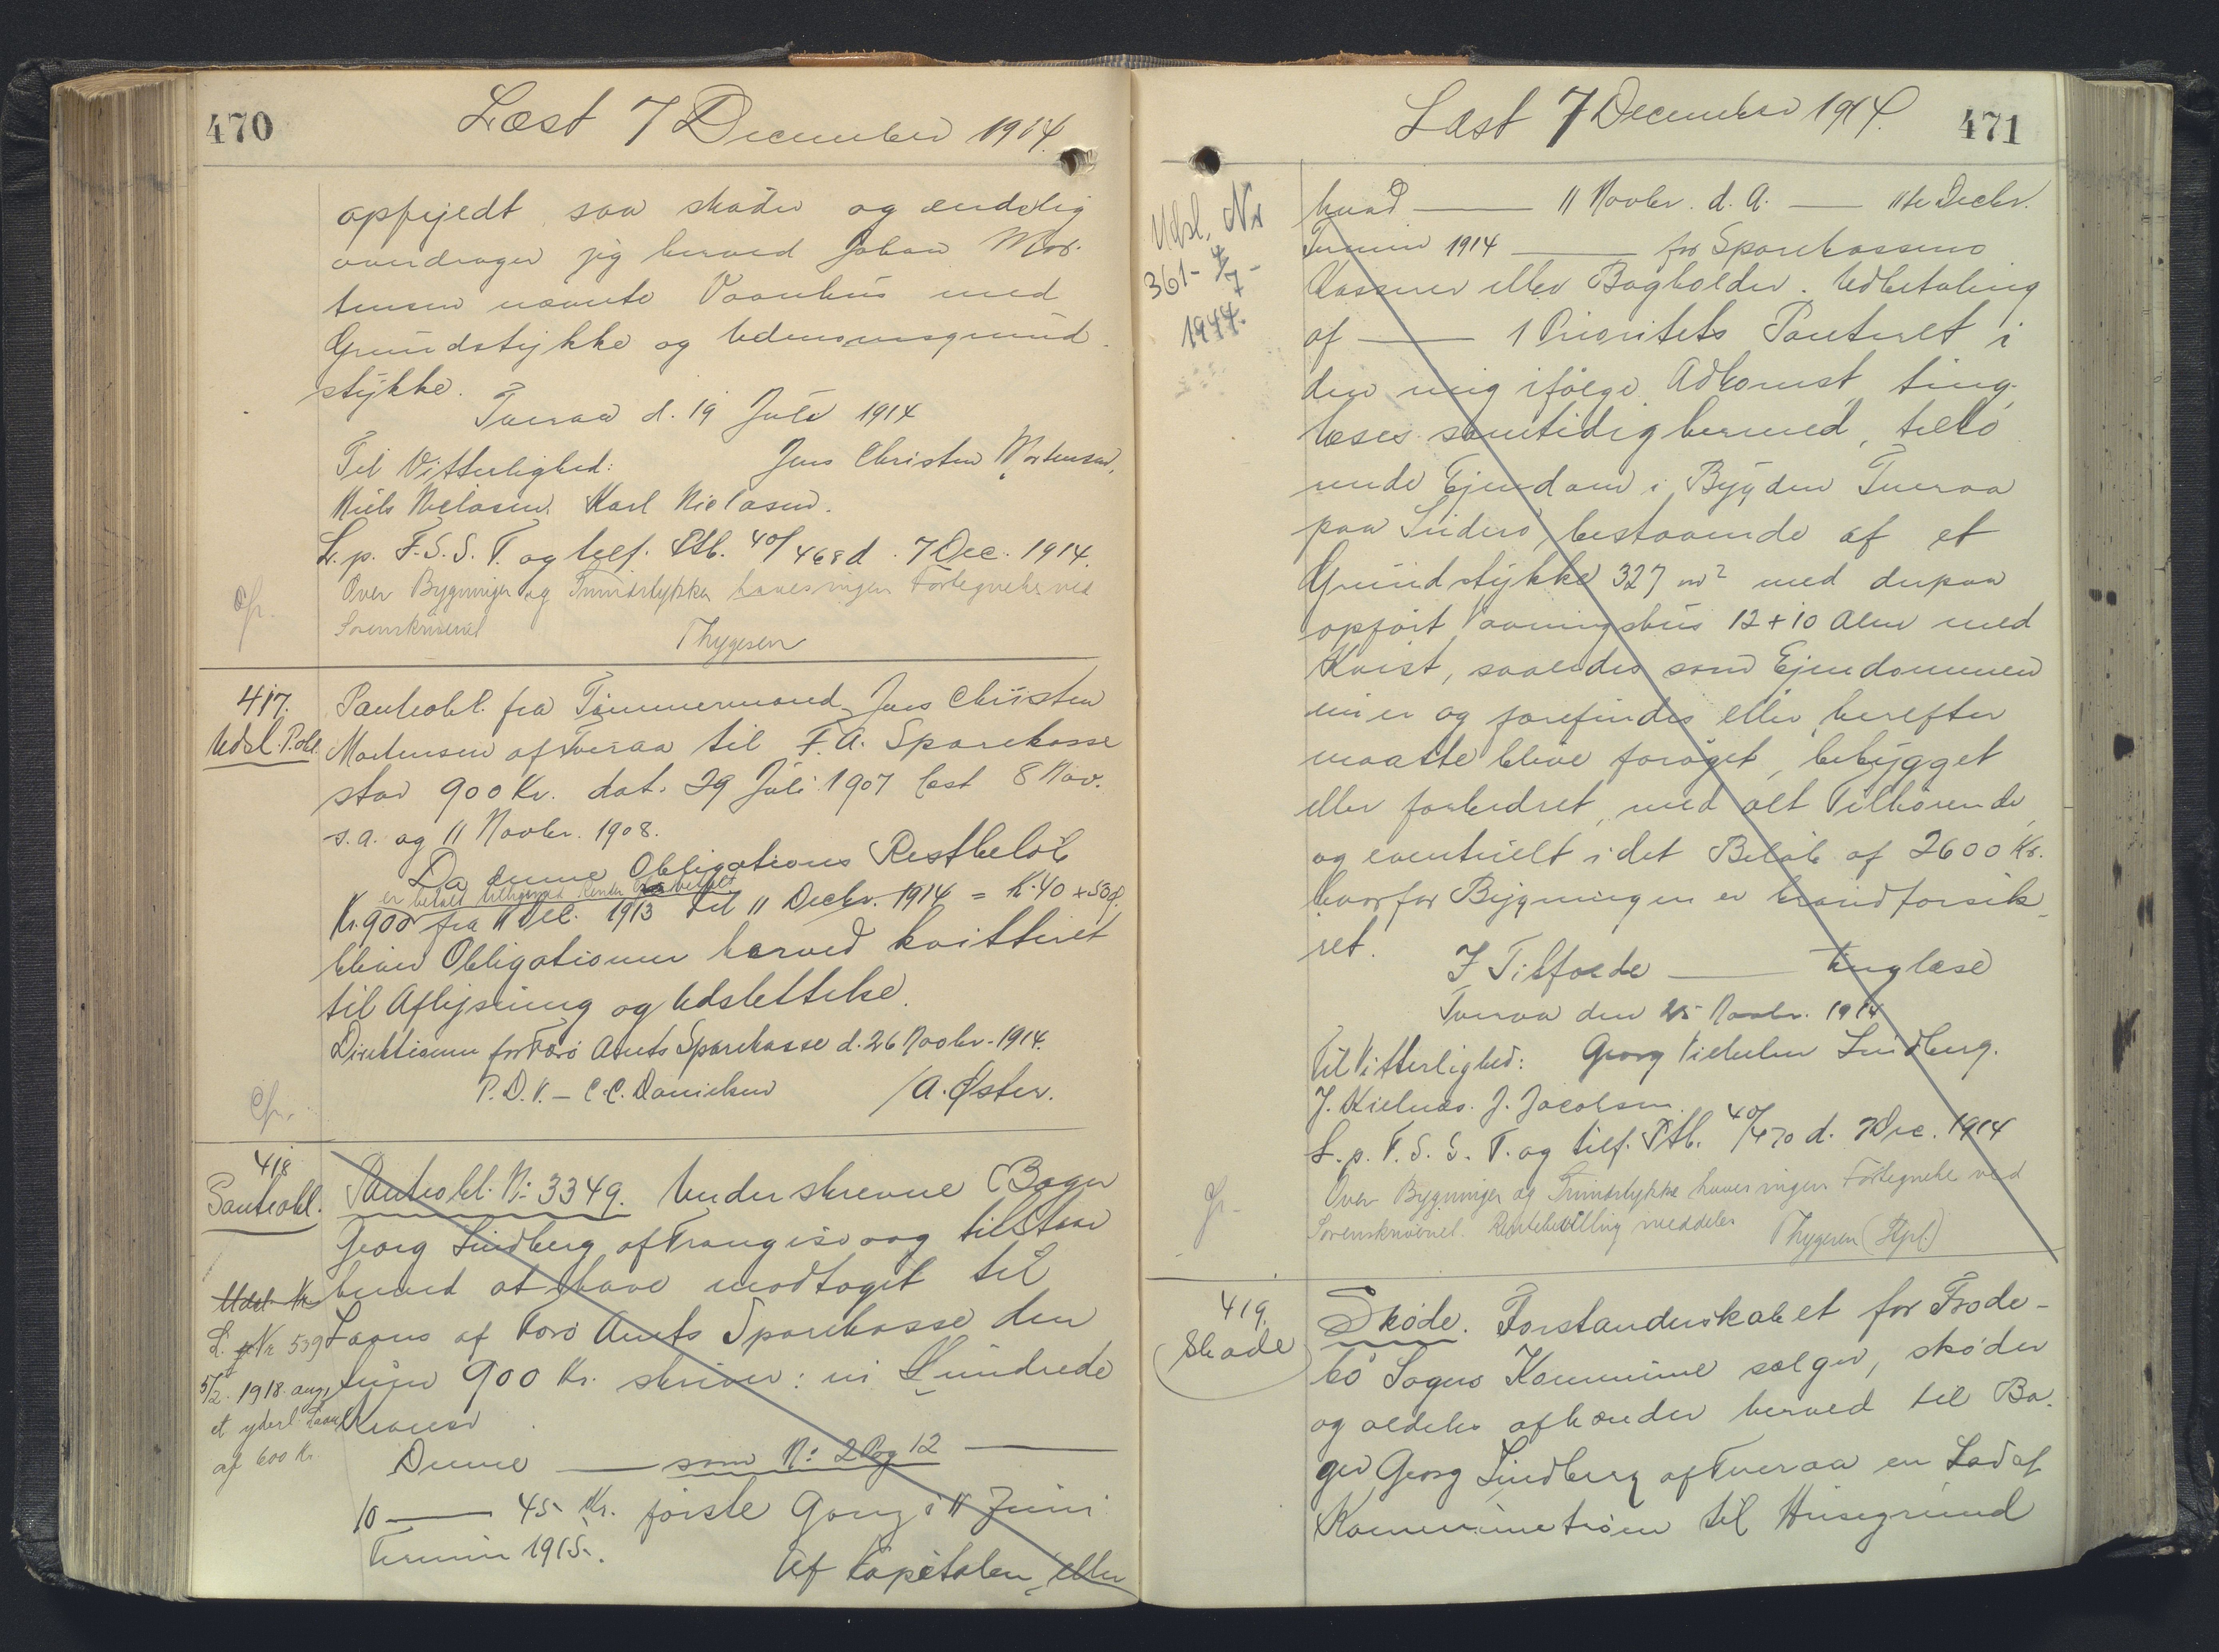 470
Læst 7 December 1914.
opfejedt saa skøder og endelig
overdrager jeg herved Johan Mor-
tensen nævnte Vaanhus med
Grundstykke og Udensomsgrund-
stykke.
Tveraa d. 19 Juli 1914
Til Vitterlighed: Jens Christen Mortensen,
Niels Nielasen. Karl Nielasen.
L. p. F. S. S. T. og tilf. Ptb. 40/468 d. 7 Dec. 1914.
Over Bygninger og Grundstykker haves ingen Fortegnelse ved
Sorenskriveriet
Thygesen
417.
Udsl. P.obl.
Panteobl. fra Tømmermand Jens Christen
Mortensen af Tveraa til F. A. Sparekasse
stor 900 Kr. dat. 29 Juli 1907 læst 8 Nov.
s. a. og 11 Novbr. 1908.
Da denne Obligations Restbeløb
er betalt tilligemed Renter
Kr. 900 fra 11 Dec. 1913 til 11 Decbr. 1914 = K. 40 + 50 Ø.
bliver Obligationen herved kvitteret
til Aflysning og Udslettelse.
Direktionen for Færø Amts Sparekasse d. 26 Novbr. 1914.
P. D. V. – C. C. Danielsen /A. Øster.
418
Panteobl.
Udsl. Nr
L. Nr 539
5/2. 1918 ang.
et yderl. Laan
af 600 Kr.
Panteobl. No 3349. Underskrevne Bager
Georg Lindberg af Trangisvaag tilstaar
herved at have modtaget til
Laans af Færø Amts Sparekasse den
Sum 900 Kr. skriver: ni Hundrede
Kroner.
Denne — som No 2 Pag 12 —
10 — 45 Kr. første Gang i 11 Juni
Termin 1915.
Af Kapitalen, eller
Læst 7 December 1914.
471
Udsl. Nr
361 - 4/7 -
1944.
hvad — 11 Novbr. d. A. — 11te Decbr.
Termin 1914 — for Sparekassens
Kasserer eller Bogholder. Udbetaling
af — 1 Prioritets Panteret i
den mig ifølge Adkomst, ting-
læses samtidig hermed, tilhø-
rende Ejendom i Bygden Tveraa
paa Suderø, bestaaende af et
Grundstykke 327 m2 med derpaa
opført Vaaningshus 12 + 10 Alen med
Kvist, saaledes som Ejendommen
nu er og forefindes eller herefter
maatte blive forøget, bebygget
eller forbedret, med alt Tilhørende,
og eventuelt i det Beløb af 2600 Kr.
hvorfor Bygningen er brandforsik-
ret.
I Tilfælde — tinglæse
Tveraa den 25 Novbr. 1914
Til Vitterlighed: Georg Vilhelm Lindberg.
J. Kjelnæs. J. Jacobsen.
L. p. F. S. S. T. og tilf. Ptb. 40/470 d. 7 Dec. 1914
Over Bygninger og Grundstykke haves ingen Fortegnelse ved
Sorenskriveriet. Rentebevilling meddeles
Thygesen (Kpt.)
419.
Skøde
Skøde. Forstanderskabet for Frode-
bø Sogns Kommune sælger, skøder
og aldeles afhænder herved til Ba-
ger Georg Lindberg af Tveraa en Lod af
Kommunetrøen til Husegrund